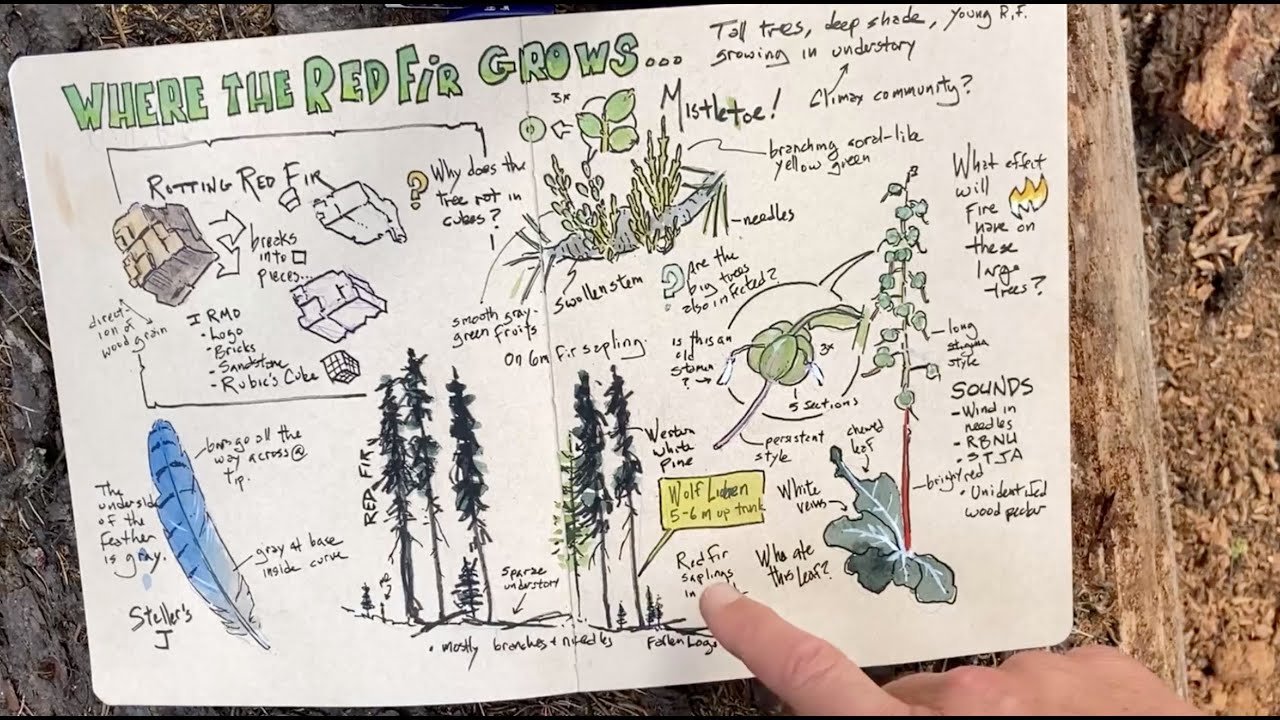 WHERE THE RED FIR GROWS...
Tall trees, deep shade, young R.F.
growing in understory
Climax community?
ROTTING RED FIR
breaks
into □
pieces...
direct-
ion of
wood grain
IRMO
• Lego
• Bricks
• Sandstone
• Rubic's Cube
? Why does the
tree rot in
cubes?
3x
Mistletoe!
branching coral-like
yellow green
needles
swollen stem
smooth gray-
green fruits
On 6m fir sapling.
? Are the
big trees
also infected?
is this an
old
stamen
?
3x
5 sections
persistent
style
What effect
will
Fire
have on
these
large
trees?
long
style
SOUNDS
- Wind in
needles
- RBNU
- STJA
• Unidentified
wood pecker
bright red
chewed
leaf
White
veins
Who ate
this leaf?
bars go all the
way across @
tip.
The
underside
of the
feather
is gray.
gray at base
inside curve
Steller's
J
RED FIR
Western
White
Pine
Wolf Lichen
5-6 m up trunk
Red fir
saplings
in
sparse
understory
• mostly branches + needles
Fallen Logs